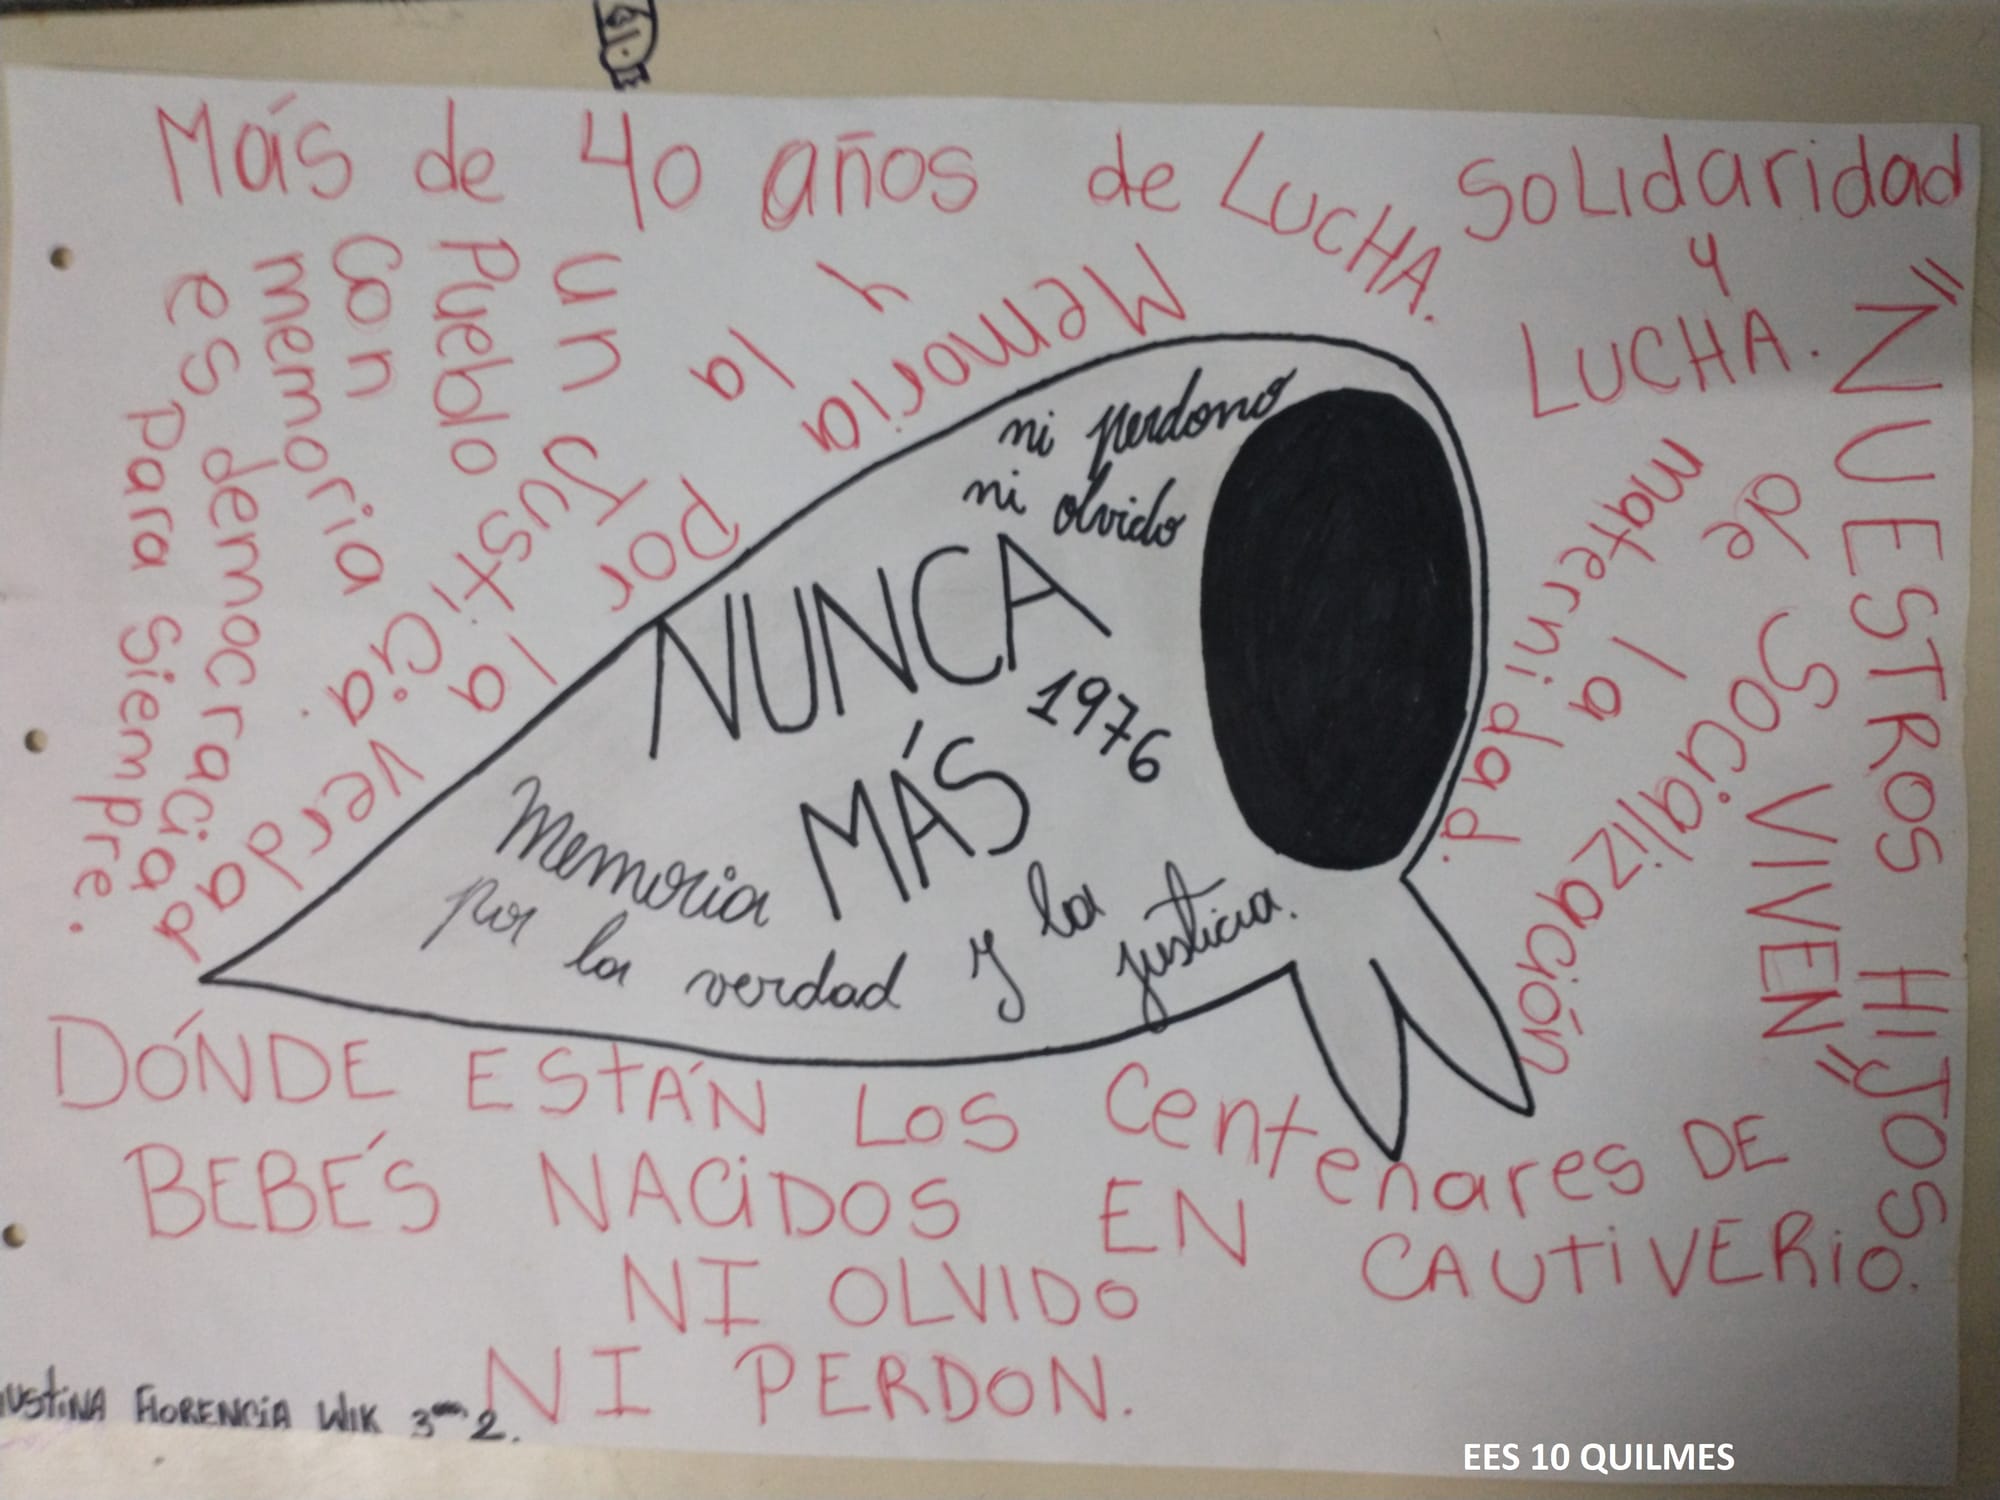 Más de 40 años de LUCHA.
Solidaridad
y
LUCHA.
"NUESTROS HIJOS
VIVEN"
de Socialización
la
maternidad.
un
Pueblo
Con
memoria
es democracia
para Siempre.
Memoria
y
la
por
la verdad
Justicia.
ni perdono
ni olvido
NUNCA
MÁS
1976
Memoria
por la verdad y la justicia.
DÓNDE ESTÁN LOS Centenares DE
BEBÉS NACiDOS EN CAUTiVERiO.
NI OLVIDO
NI PERDON.
USTiNA FlORENCiA WIK 3 2.
EES 10 QUILMES